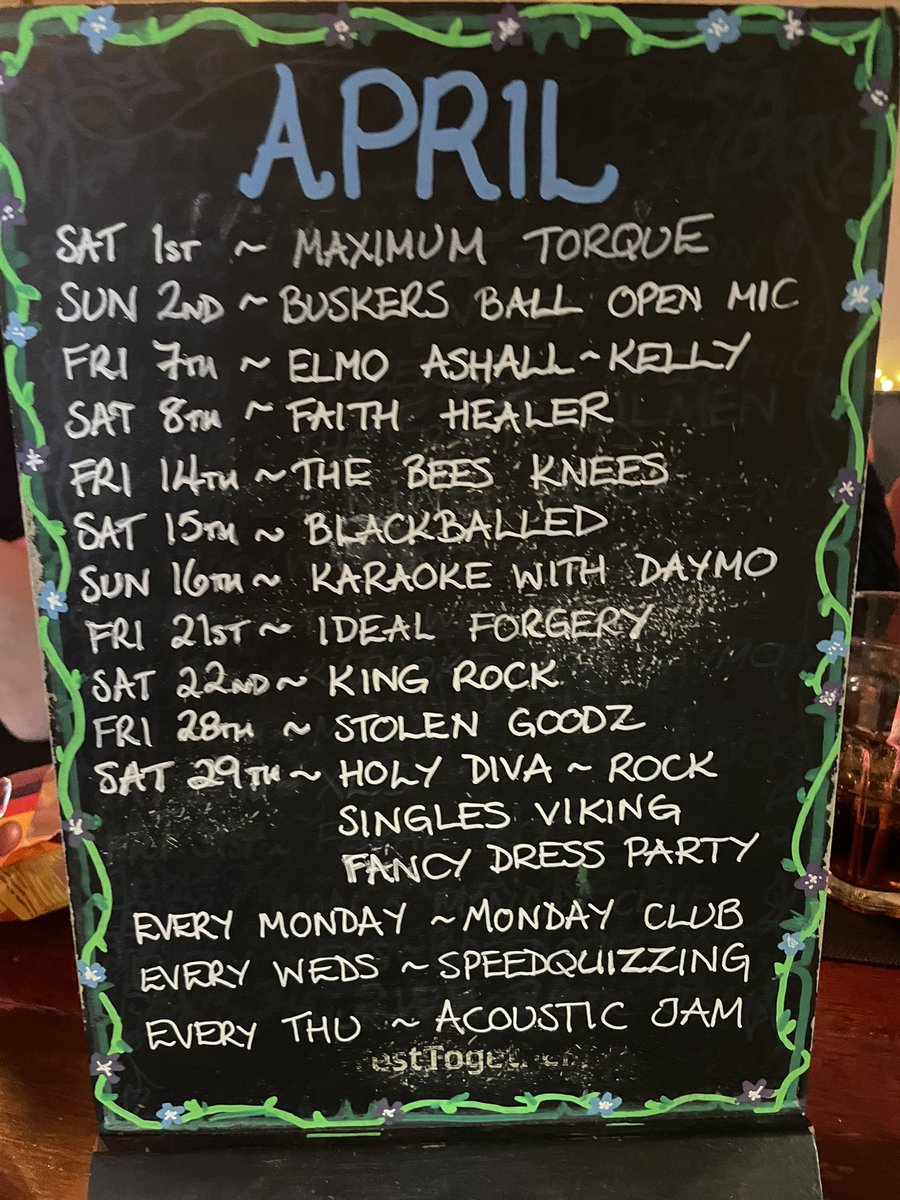 APRIL
SAT 1ST ~ MAXIMUM TORQUE
SUN 2ND ~ BUSKERS BALL OPEN MIC
FRI 7TH ~ ELMO ASHALL~KELLY
SAT 8TH ~ FAITH HEALER
FRI 14TH ~ THE BEES KNEES
SAT 15TH ~ BLACKBALLED
SUN 16TH ~ KARAOKE WITH DAYMO
FRI 21ST ~ IDEAL FORGERY
SAT 22ND ~ KING ROCK
FRI 28TH ~ STOLEN GOODZ
SAT 29TH ~ HOLY DIVA ~ ROCK
SINGLES VIKING
FANCY DRESS PARTY
EVERY MONDAY ~ MONDAY CLUB
EVERY WEDS ~ SPEEDQUIZZING
EVERY THU ~ ACOUSTIC JAM